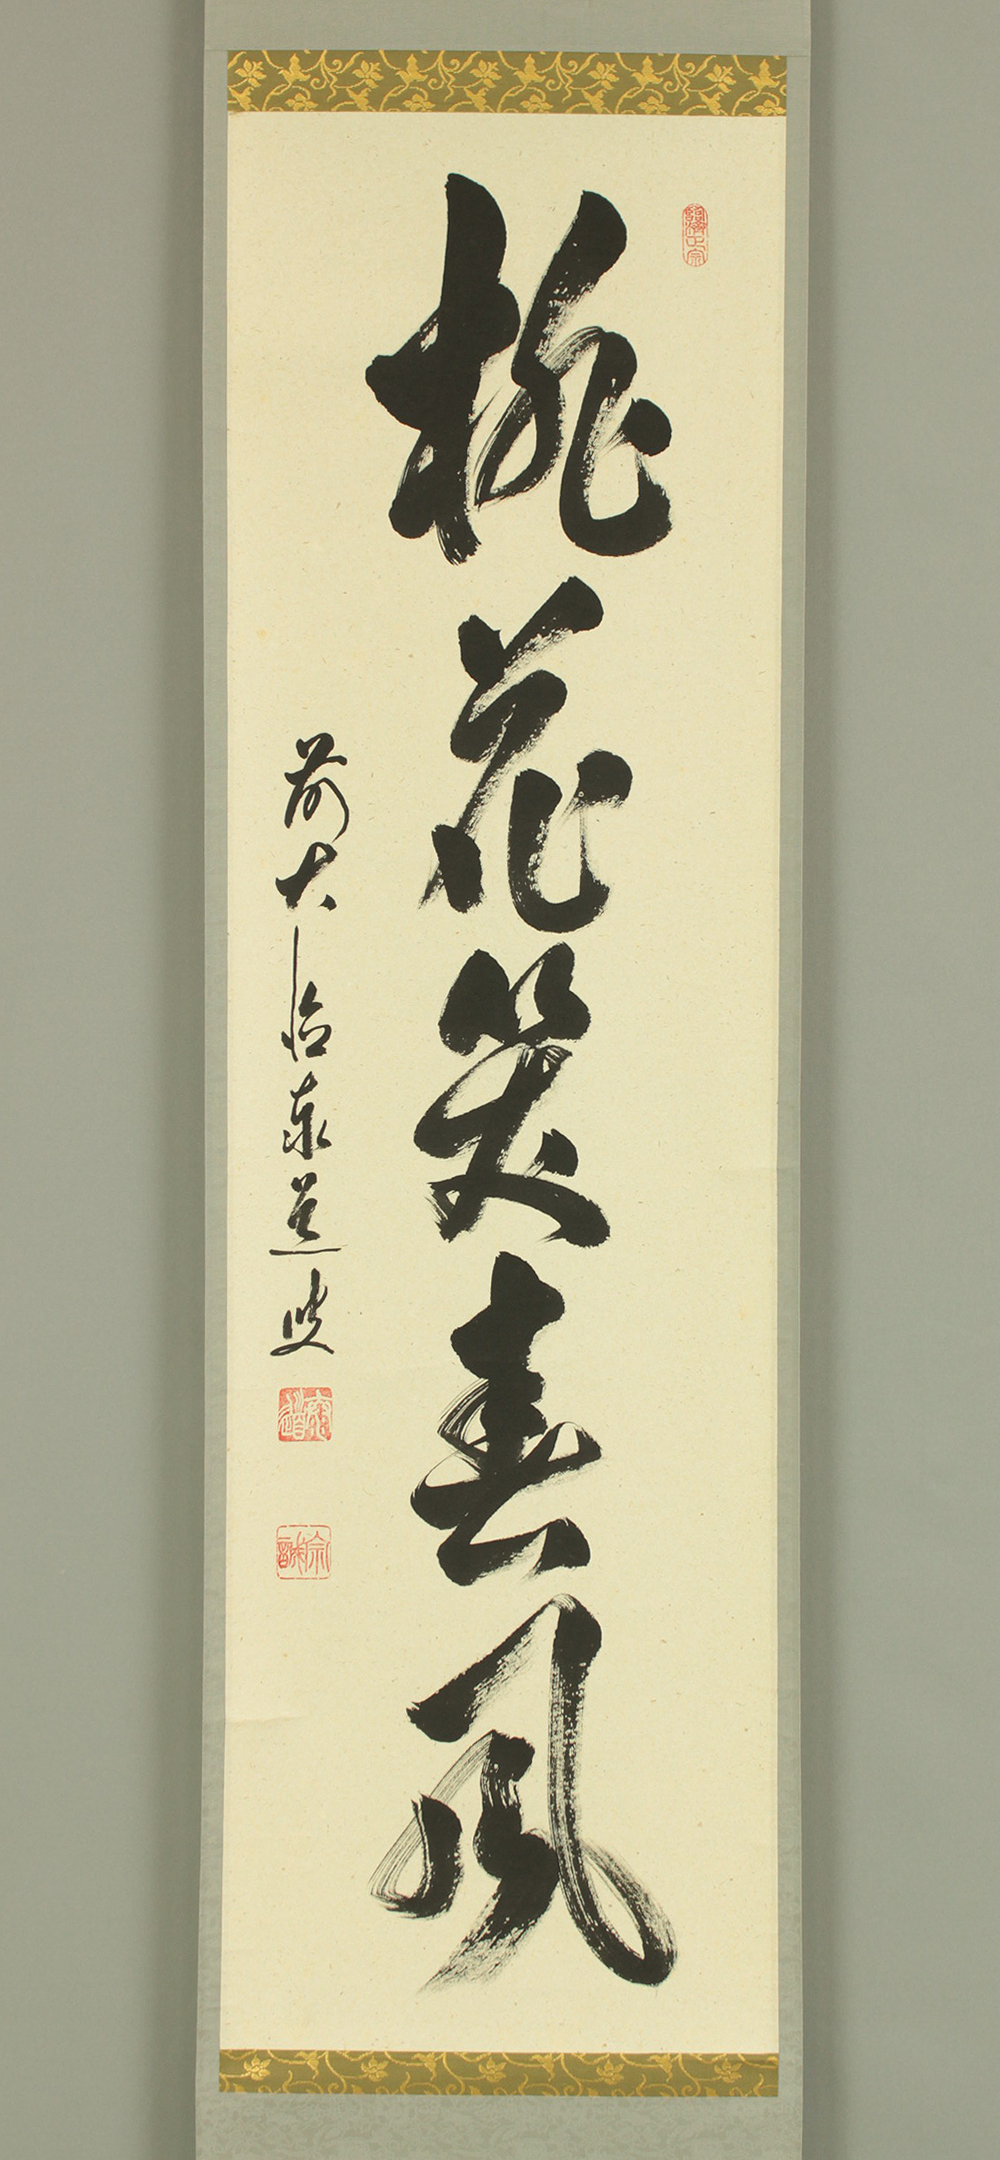 桃花笑春風
前大徳泰道叟
宗誠